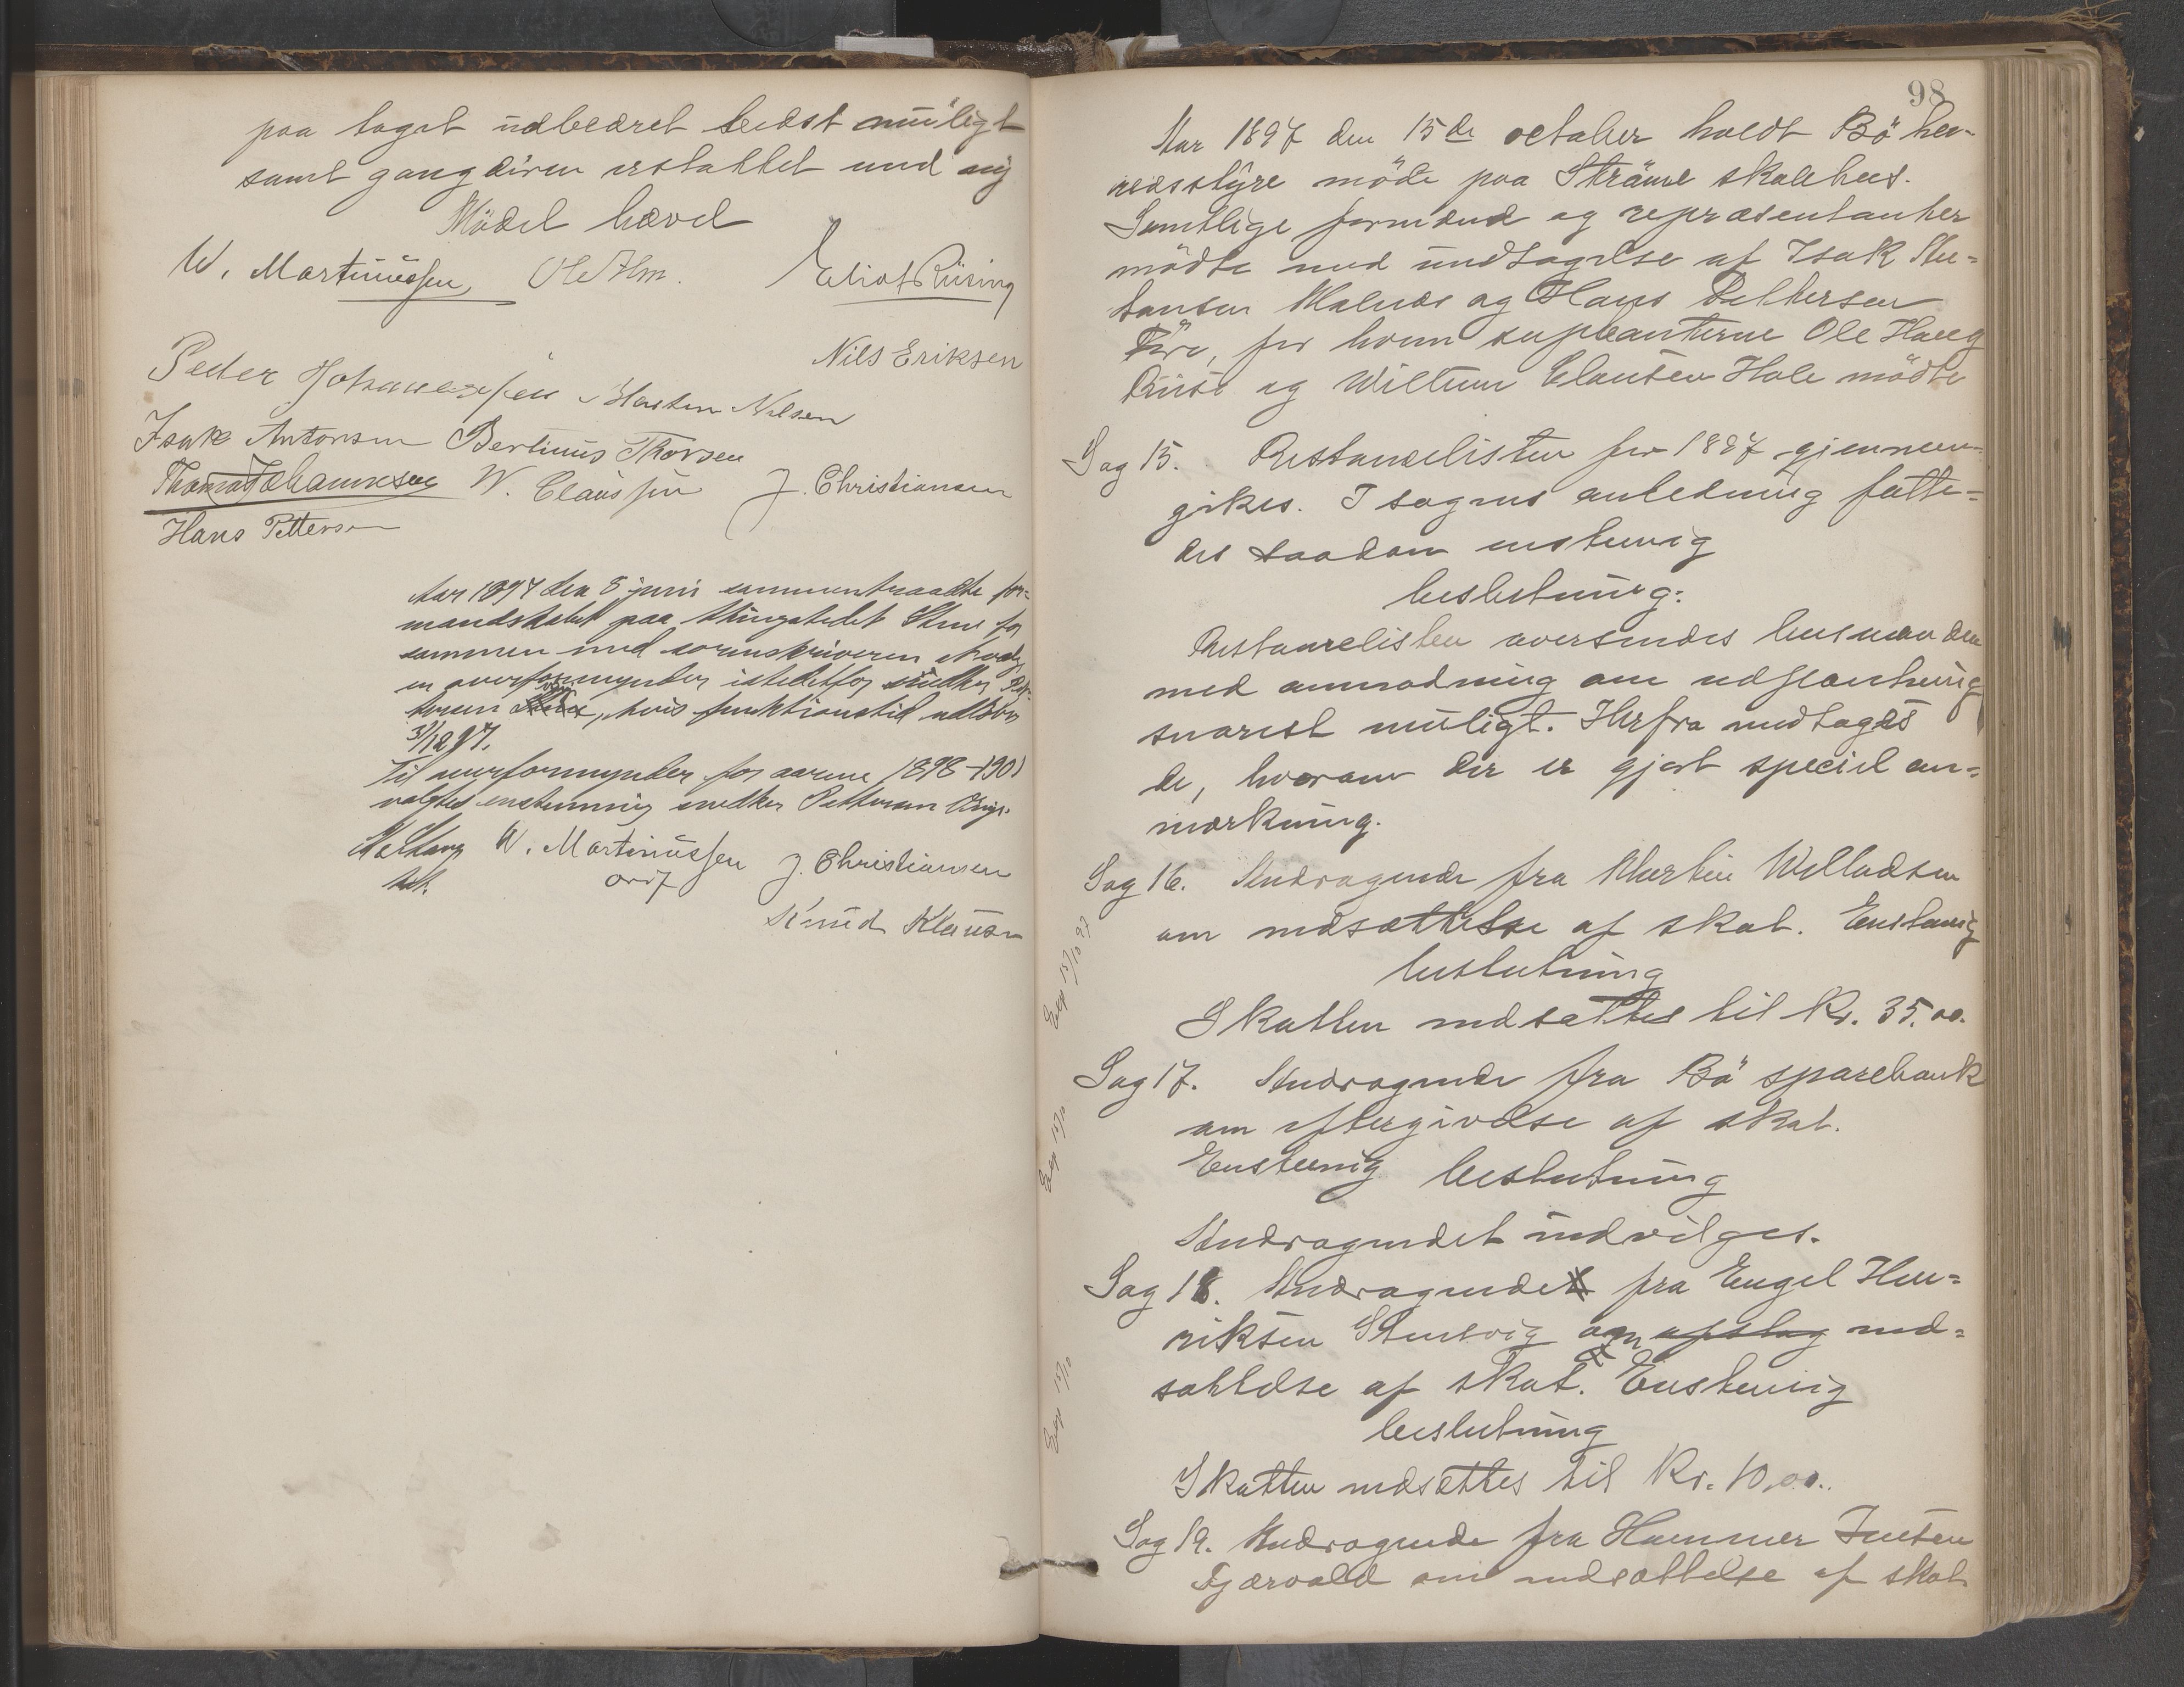 paa taget udbedret bedst muligt
samt gangdören erstattet med ny
Mödet hævet
W. Martinussen Ole Alm. Eliot Rüsing
Nils Eriksen
Peder Johannessen Morten Nilsen
Isak Antonsen Bertinus Thorsen
Thomas Johannesen W. Claussen J. Christiansen
Hans Pettersen
Aar 1897 den 8 juni sammentraadte for-
mandskabet paa thingstedet Steine for
sammen med sorenskriveren at vælge
en overformynder istedetfor snedker Pet-
tersen, hvis funktionstid udlöber
31/12 97.
Til overformynder for aarene 1898-1901
valgtes enstemmig snedker Pettersen
W. Martinussen J. Christiansen
ordf
Knud Klausen
98
Aar 1897 den 15de october holdt Bö her-
redsstyre möde paa Straume skolehus.
Samtlige formænd og repræsentanter
mödte med undtagelse af Isak An-
tonsen Malnes og Hans Pettersen
Före, for hvem supleanterne Ole Haug
Ruise og Willum Clausen Hole mödte
Sag 15. Restancelisten for 1897 gjennem-
gikes. I sagens anledning fatte-
des saadan enstemmig
beslutning:
Restancelisten oversendes lensmanden
med anmodning om udpantning
snarest muligt. Herfra undtages
de, hvorom der er gjort speciel an-
mærkning.
Sag 16. Andragende fra Martin Willadsen
om nedsættelse af skat. Enstemmig
beslutning
Skatten nedsættes til Kr. 35.00.
Exp 15/10 97
Sag 17. Andragende fra Bö sparebank
om eftergivelse af skat.
Enstemmig beslutning
Andragendet indvilges.
Exp 15/10
Sag 18. Andragende fra Engel Hen-
riksen Steinsvig om afslag ned-
sættelse af skat. Enstemmig
beslutning
Skatten nedsættes til Kr. 10,00.
Exp 15/10
Sag 19. Andragende fra Hammer Jentsen
Fjærvold om nedsættelse af skat